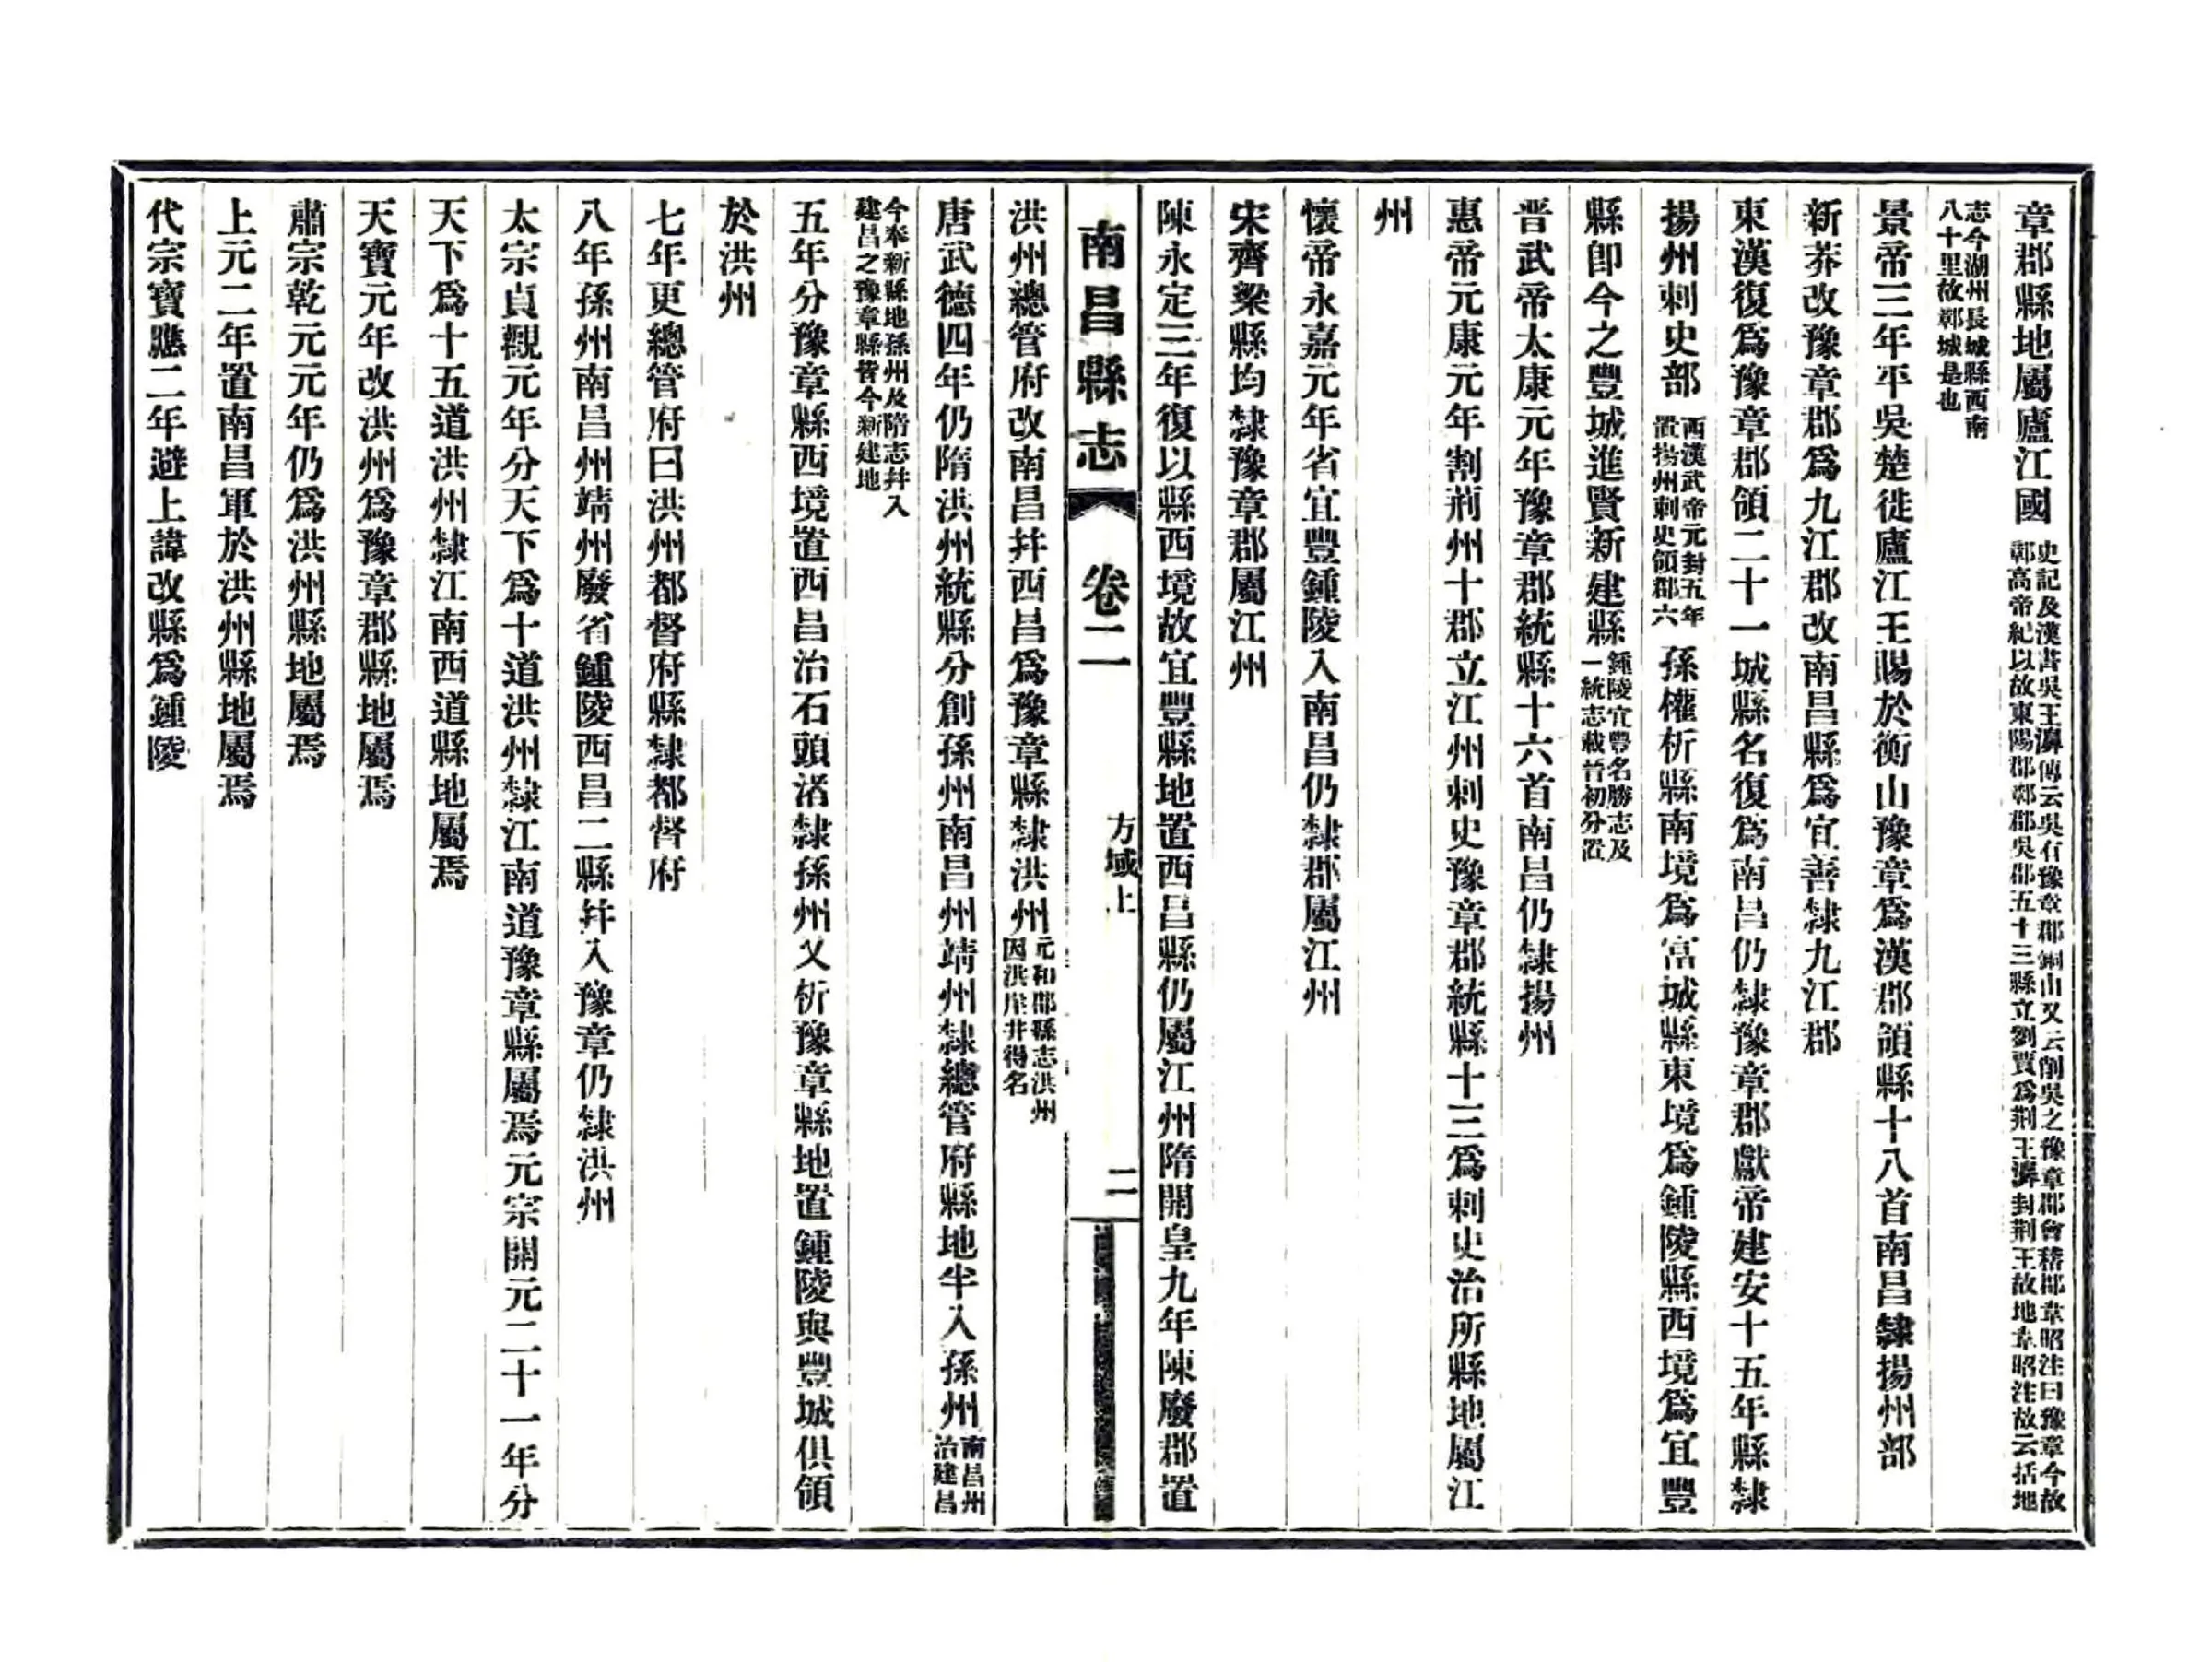 章郡縣地屬廬江國
史記及漢書吳王濞傳云吳有豫章郡銅山又云削吳之豫章郡會稽郡韋昭注曰豫章今故
鄣高帝紀以故東陽郡鄣郡吳郡五十三縣立劉賈爲荆王濞封荆王故地韋昭注故云括地
志今湖州長城縣西南
八十里故鄣城是也
景帝三年平吳楚徙廬江王賜於衡山豫章爲漢郡領縣十八首南昌隸揚州部
新莽改豫章郡爲九江郡改南昌縣爲宜善隸九江郡
東漢復爲豫章郡領二十一城縣名復爲南昌仍隸豫章郡獻帝建安十五年縣隸
揚州刺史部
西漢武帝元封五年
置揚州刺史領郡六
孫權析縣南境爲富城縣東境爲鍾陵縣西境爲宜豐
縣卽今之豐城進賢新建縣
鍾陵宜豐名勝志及
一統志載晉初分置
晋武帝太康元年豫章郡統縣十六首南昌仍隸揚州
惠帝元康元年割荊州十郡立江州刺史豫章郡統縣十三爲刺史治所縣地屬江
州
懷帝永嘉元年省宜豐鍾陵入南昌仍隸郡屬江州
宋齊梁縣均隸豫章郡屬江州
陳永定三年復以縣西境故宜豐縣地置西昌縣仍屬江州隋開皇九年陳廢郡置
南昌縣志
卷二
方域上
二
洪州總管府改南昌幷西昌爲豫章縣隸洪州
元和郡縣志洪州
因洪崖井得名
唐武德四年仍隋洪州統縣分創孫州南昌州靖州隸總管府縣地半入孫州
南昌州
治建昌
今奉新縣地孫州及隋志幷入
建昌之豫章縣皆今新建地
五年分豫章縣西境置西昌治石頭渚隸孫州又析豫章縣地置鍾陵與豐城俱領
於洪州
七年更總管府曰洪州都督府縣隸都督府
八年孫州南昌州靖州廢省鍾陵西昌二縣幷入豫章仍隸洪州
太宗貞觀元年分天下爲十道洪州隸江南道豫章縣屬焉元宗開元二十一年分
天下爲十五道洪州隸江南西道縣地屬焉
天寶元年改洪州爲豫章郡縣地屬焉
肅宗乾元元年仍爲洪州縣地屬焉
上元二年置南昌軍於洪州縣地屬焉
代宗寶應二年避上諱改縣爲鍾陵